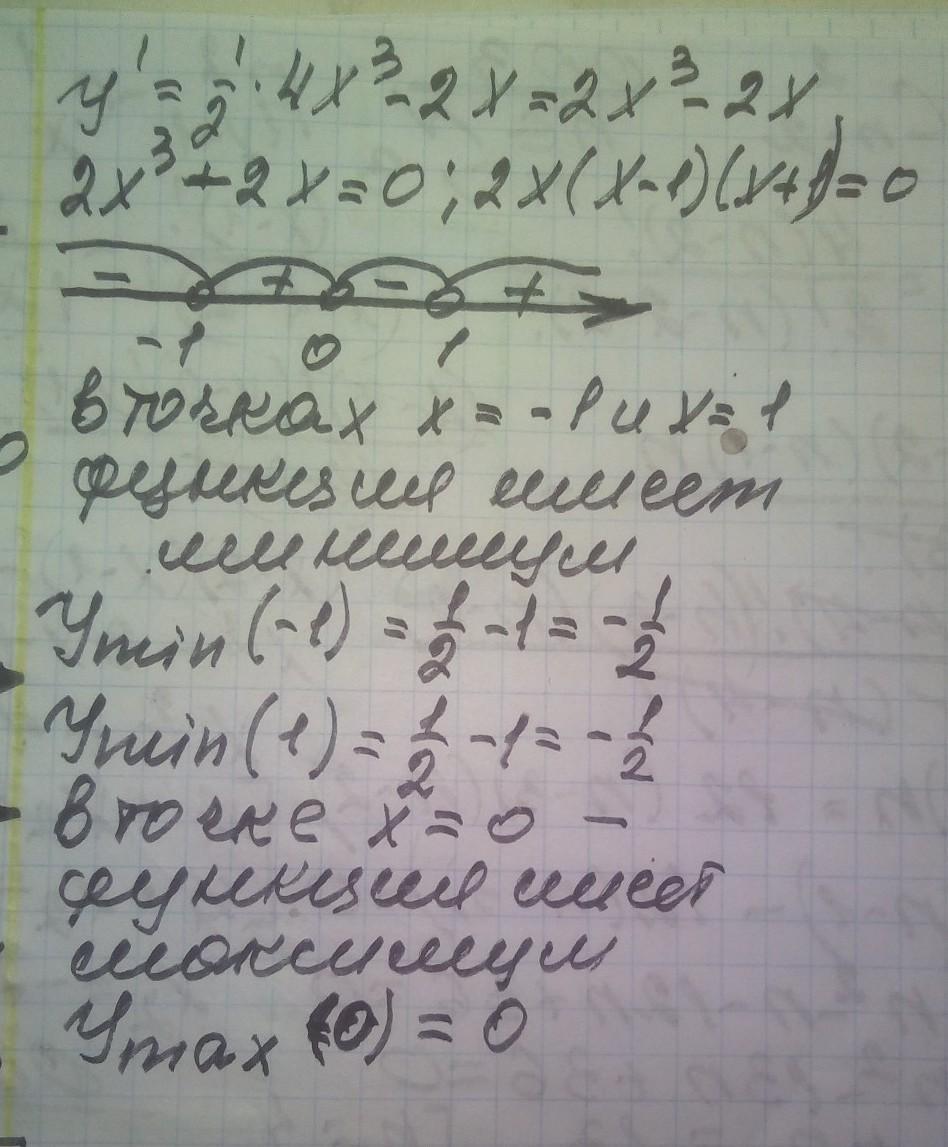 y' = 1/2 · 4x³ - 2x = 2x³ - 2x
2x³ + 2x = 0; 2x(x-1)(x+1) = 0
- + - +
-1 0 1
в точках x = -1 и x = 1
функция имеет
минимум
Ymin (-1) = 1/2 - 1 = -1/2
Ymin (1) = 1/2 - 1 = -1/2
в точке x = 0 -
функция имеет
максимум
Ymax (0) = 0